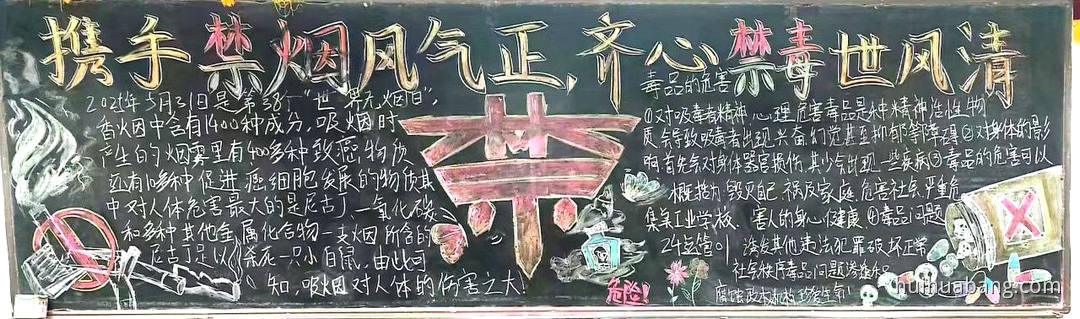 携手禁烟风气正，齐心禁毒世风清
2025年5月31日是第38个"世界无烟日"，
香烟中含有1400种成分，吸烟时
产生的烟雾里有40多种致癌物质
还有10多种促进癌细胞发展的物质其
中对人体危害最大的是尼古丁、一氧化碳
和多种其他金属化合物一支烟所含的
尼古丁足以杀死一只小白鼠，由此可
知，吸烟对人体的伤害之大!
禁
毒品的危害
①对吸毒者精神、心理危害毒品是种精神活性物
质，会导致吸毒者出现兴奋、幻觉甚至抑郁等障碍②对身体的影
响首先会对身体器官损伤，其少会出现一些疾病③毒品的危害可以
概括为 毁灭自己、祸及家庭、危害社会、严重危
害人的身心健康、④毒品问题
诱发其他违法犯罪破坏正常
社会秩序毒品问题
集美工业学校
24监管01
危险!
huihuabang.com